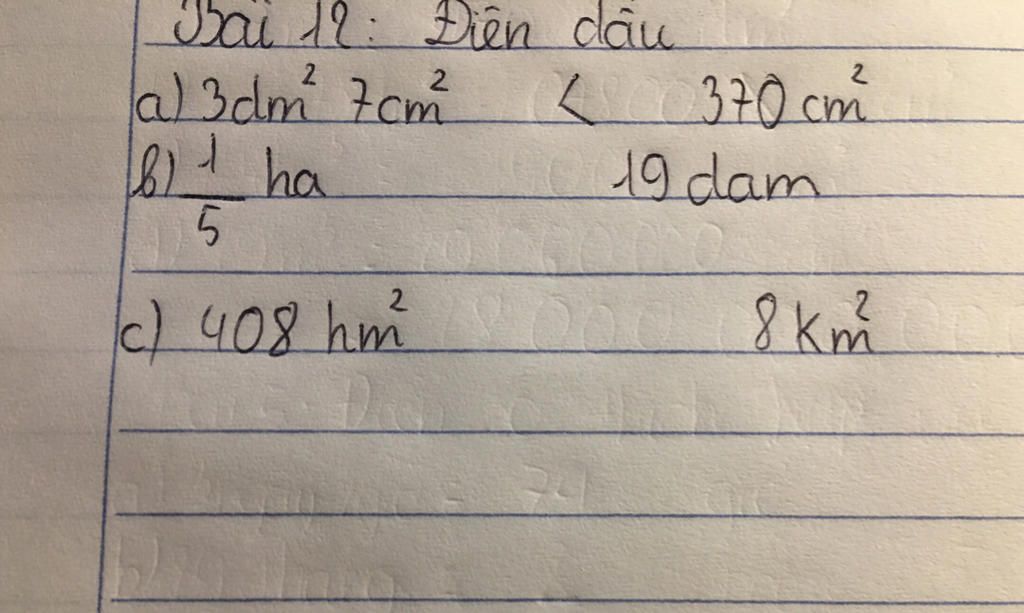 Bài 12: Điền dấu
a) 3dm² 7cm² < 370 cm²
b) 1/5 ha 19 dam
c) 408 hm² 8 km²